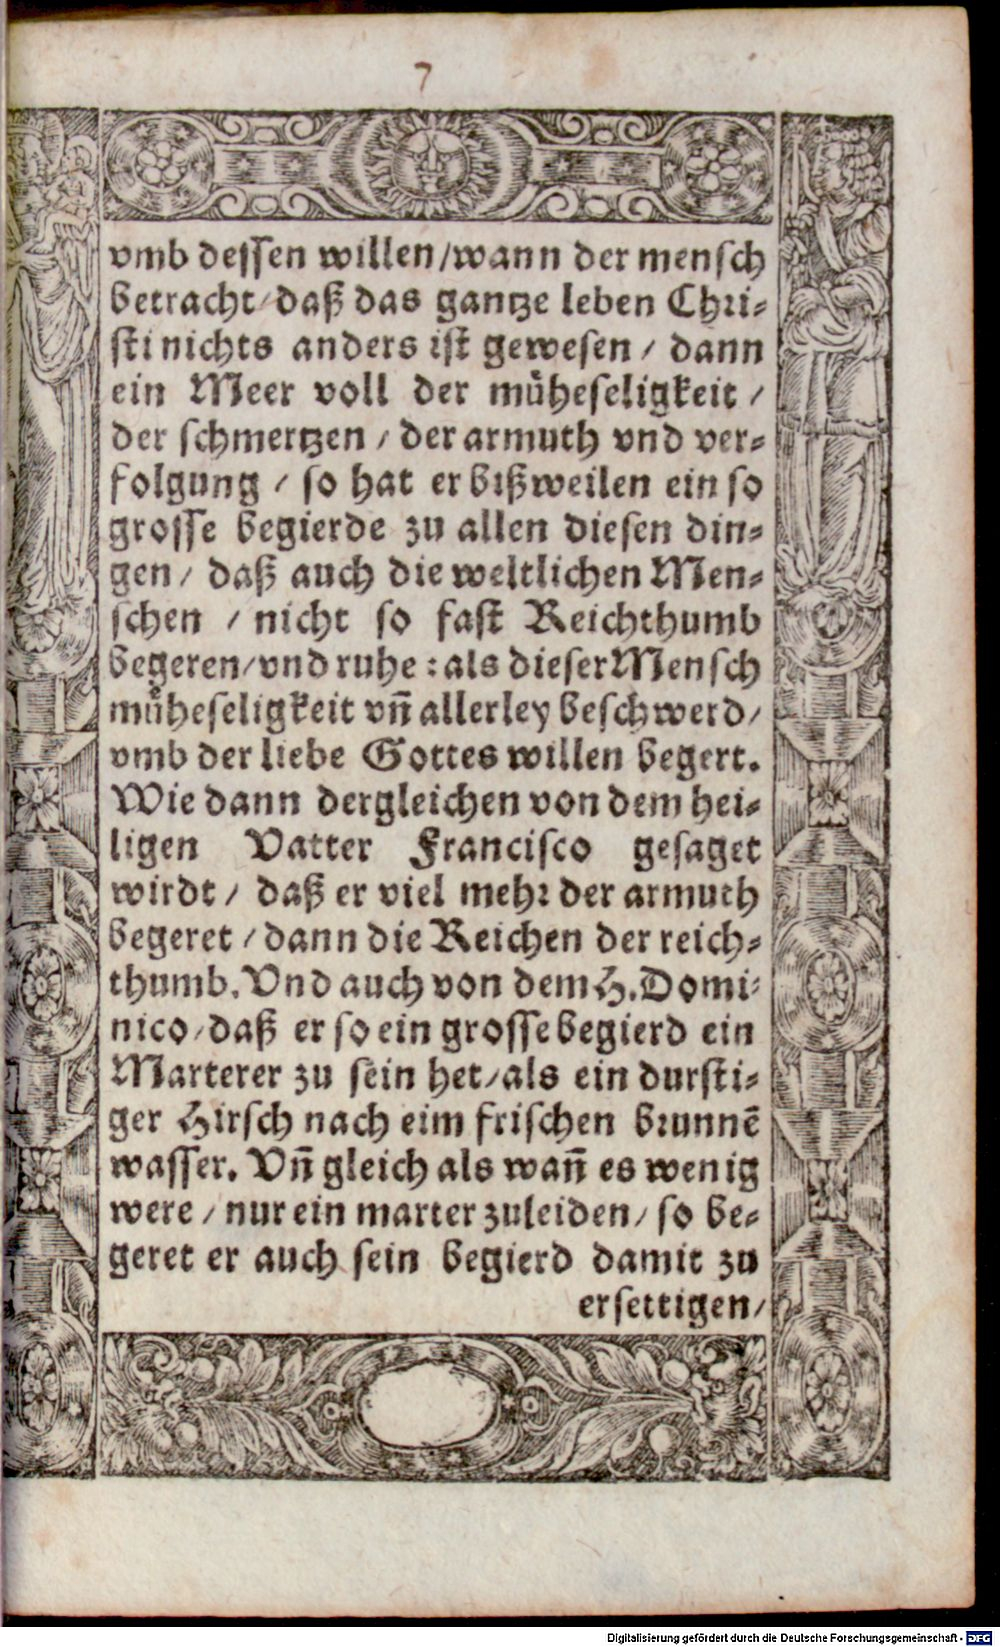 7
vmb dessen willen/wann der mensch
betracht/daß das gantze leben Chri-
sti nichts anders ist gewesen / dann
ein Meer voll der müheseligkeit /
der schmertzen / der armuth vnd ver-
folgung / so hat er bißweilen ein so
grosse begierde zu allen diesen din-
gen/ daß auch die weltlichen Men-
schen / nicht so fast Reichthumb
begeren/vnd ruhe : als dieser Mensch
müheseligkeit vñ allerley beschwerd/
vmb der liebe Gottes willen begert.
Wie dann dergleichen von dem hei-
ligen Vatter Francisco gesaget
wirdt / daß er viel mehr der armuth
begeret / dann die Reichen der reich-
thumb. Vnd auch von dem H. Domi-
nico/daß er so ein grosse begierd ein
Marterer zu sein het/als ein dursti-
ger Hirsch nach eim frischen brunnē
wasser. Vñ gleich als wañ es wenig
were / nur ein marter zuleiden/ so be-
geret er auch sein begierd damit zu
ersettigen/
Digitalisierung gefördert durch die Deutsche Forschungsgemeinschaft - DFG